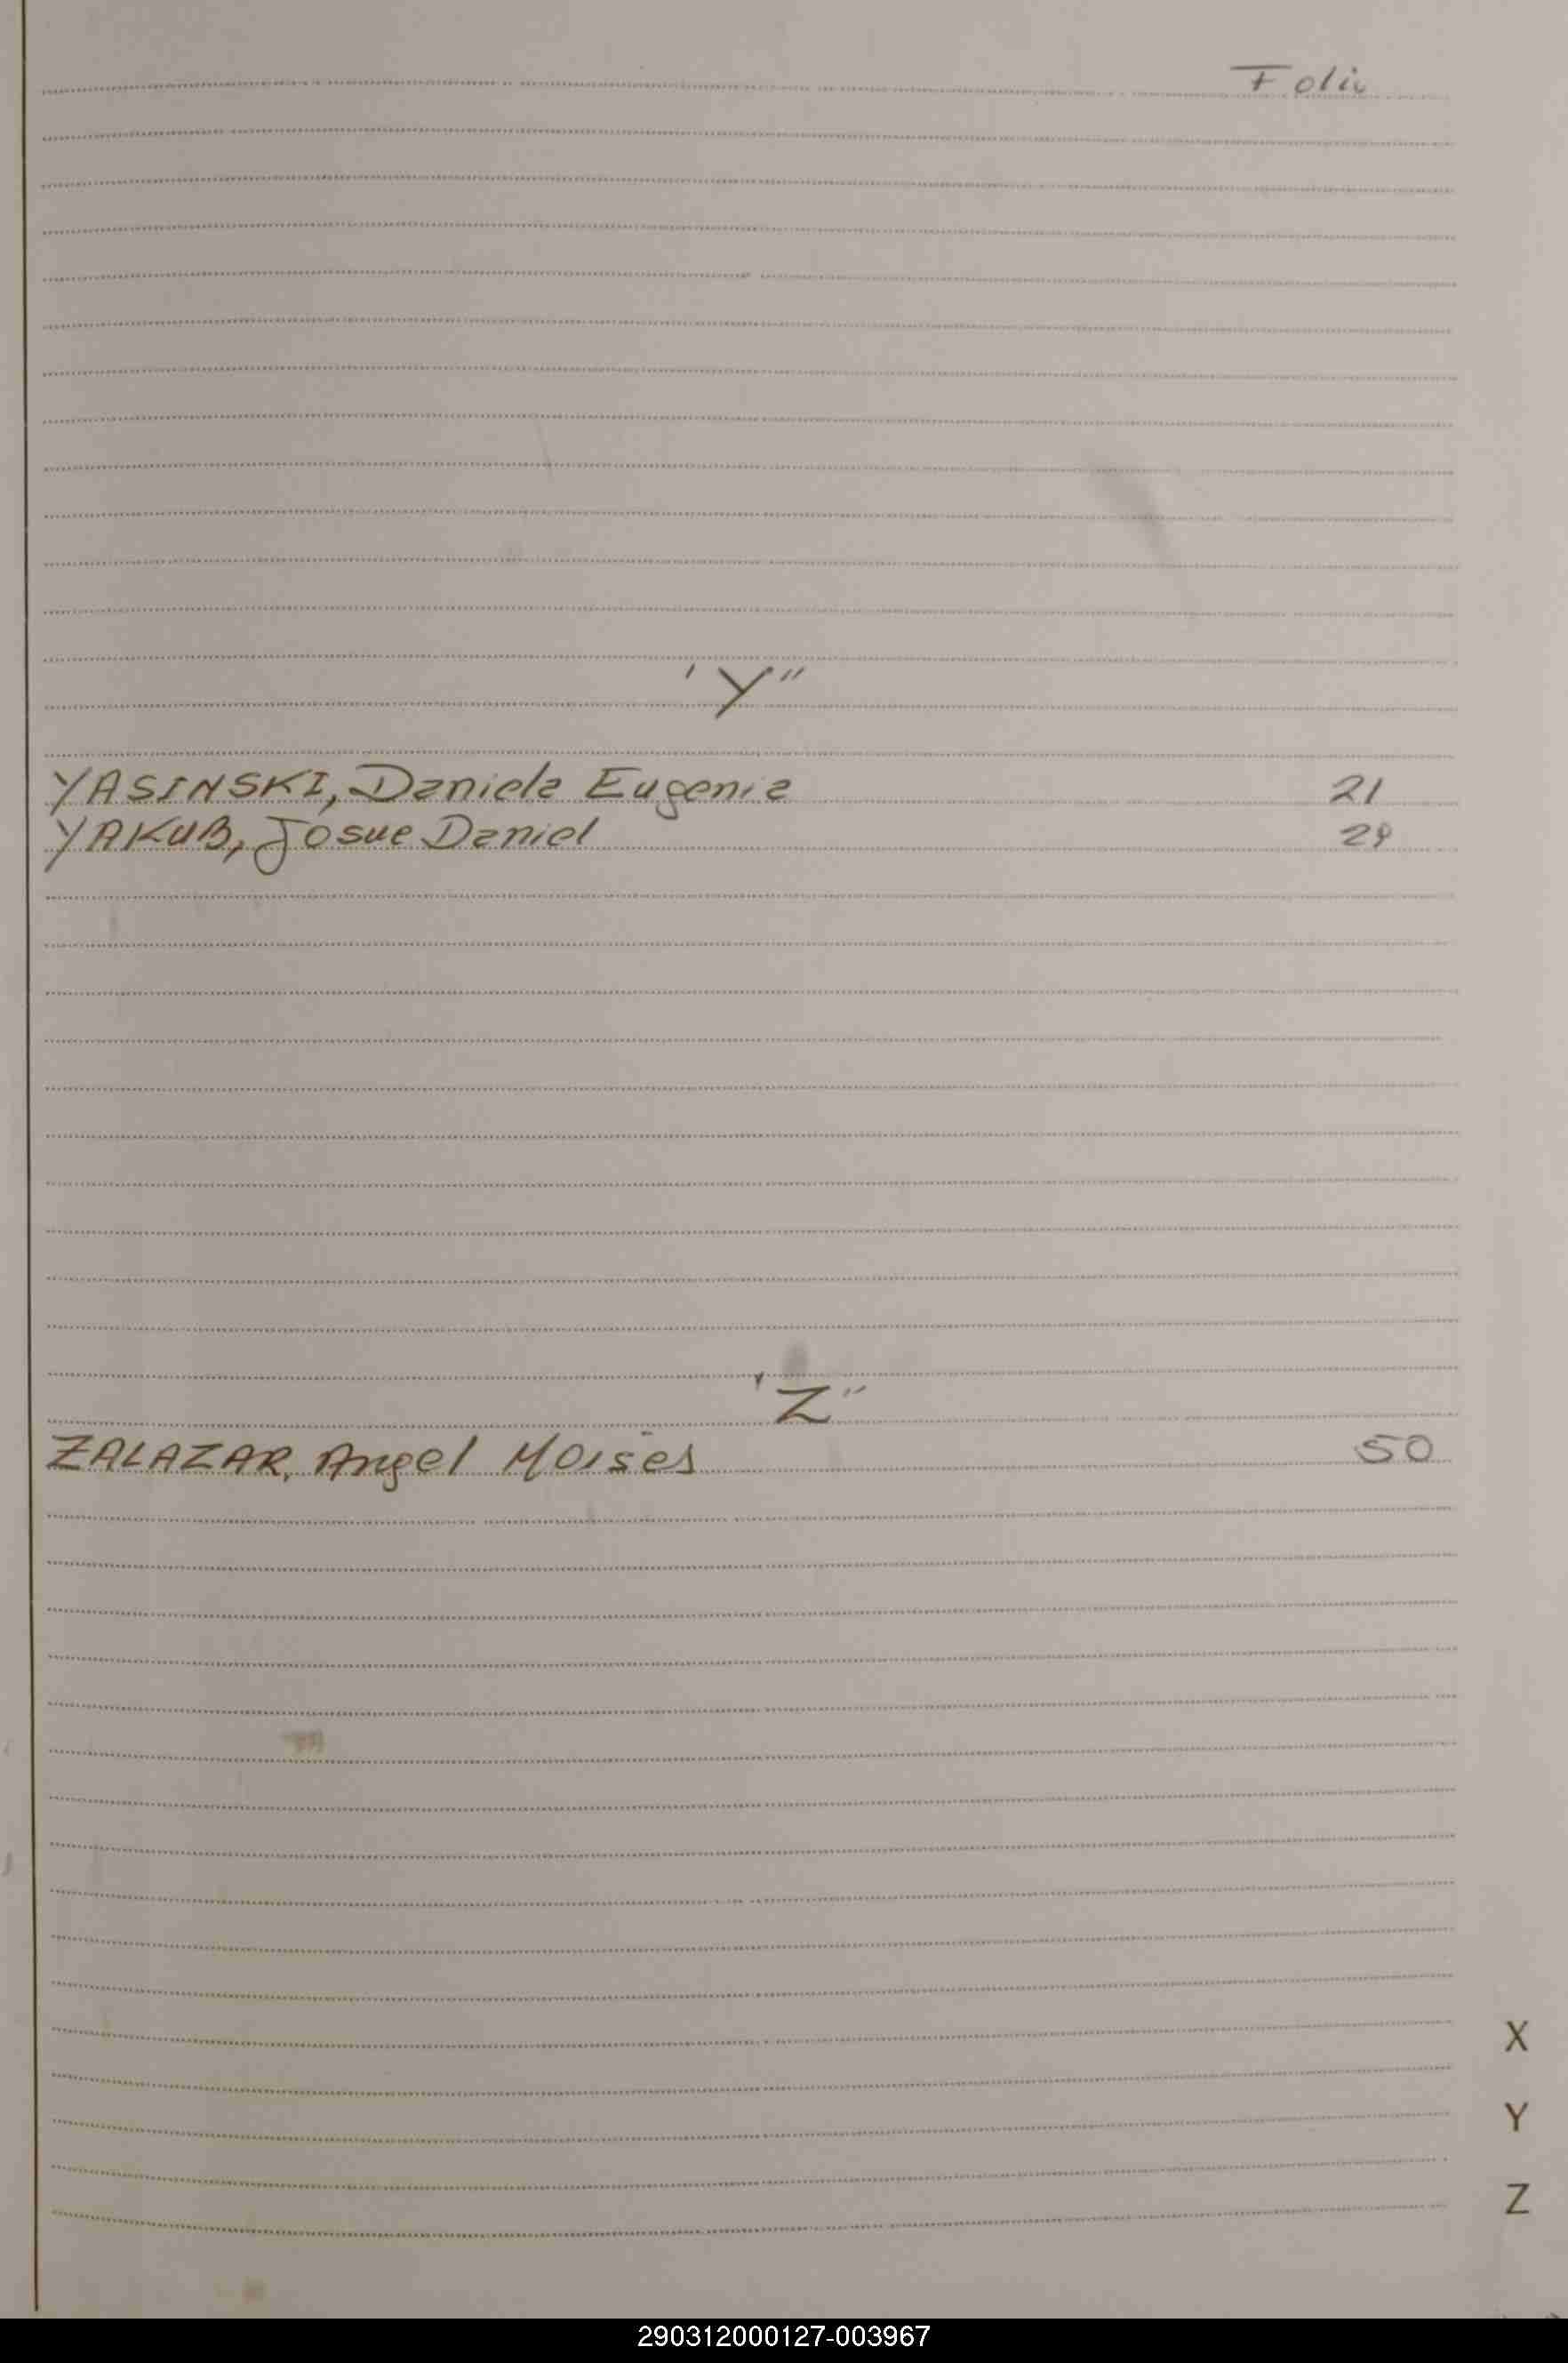 Folio
"Y"
YASINSKI, Daniela Eugenia 21
YAKUB, Josue Daniel 29
"Z"
ZALAZAR, Angel Moises 50
X
Y
Z
290312000127-003967